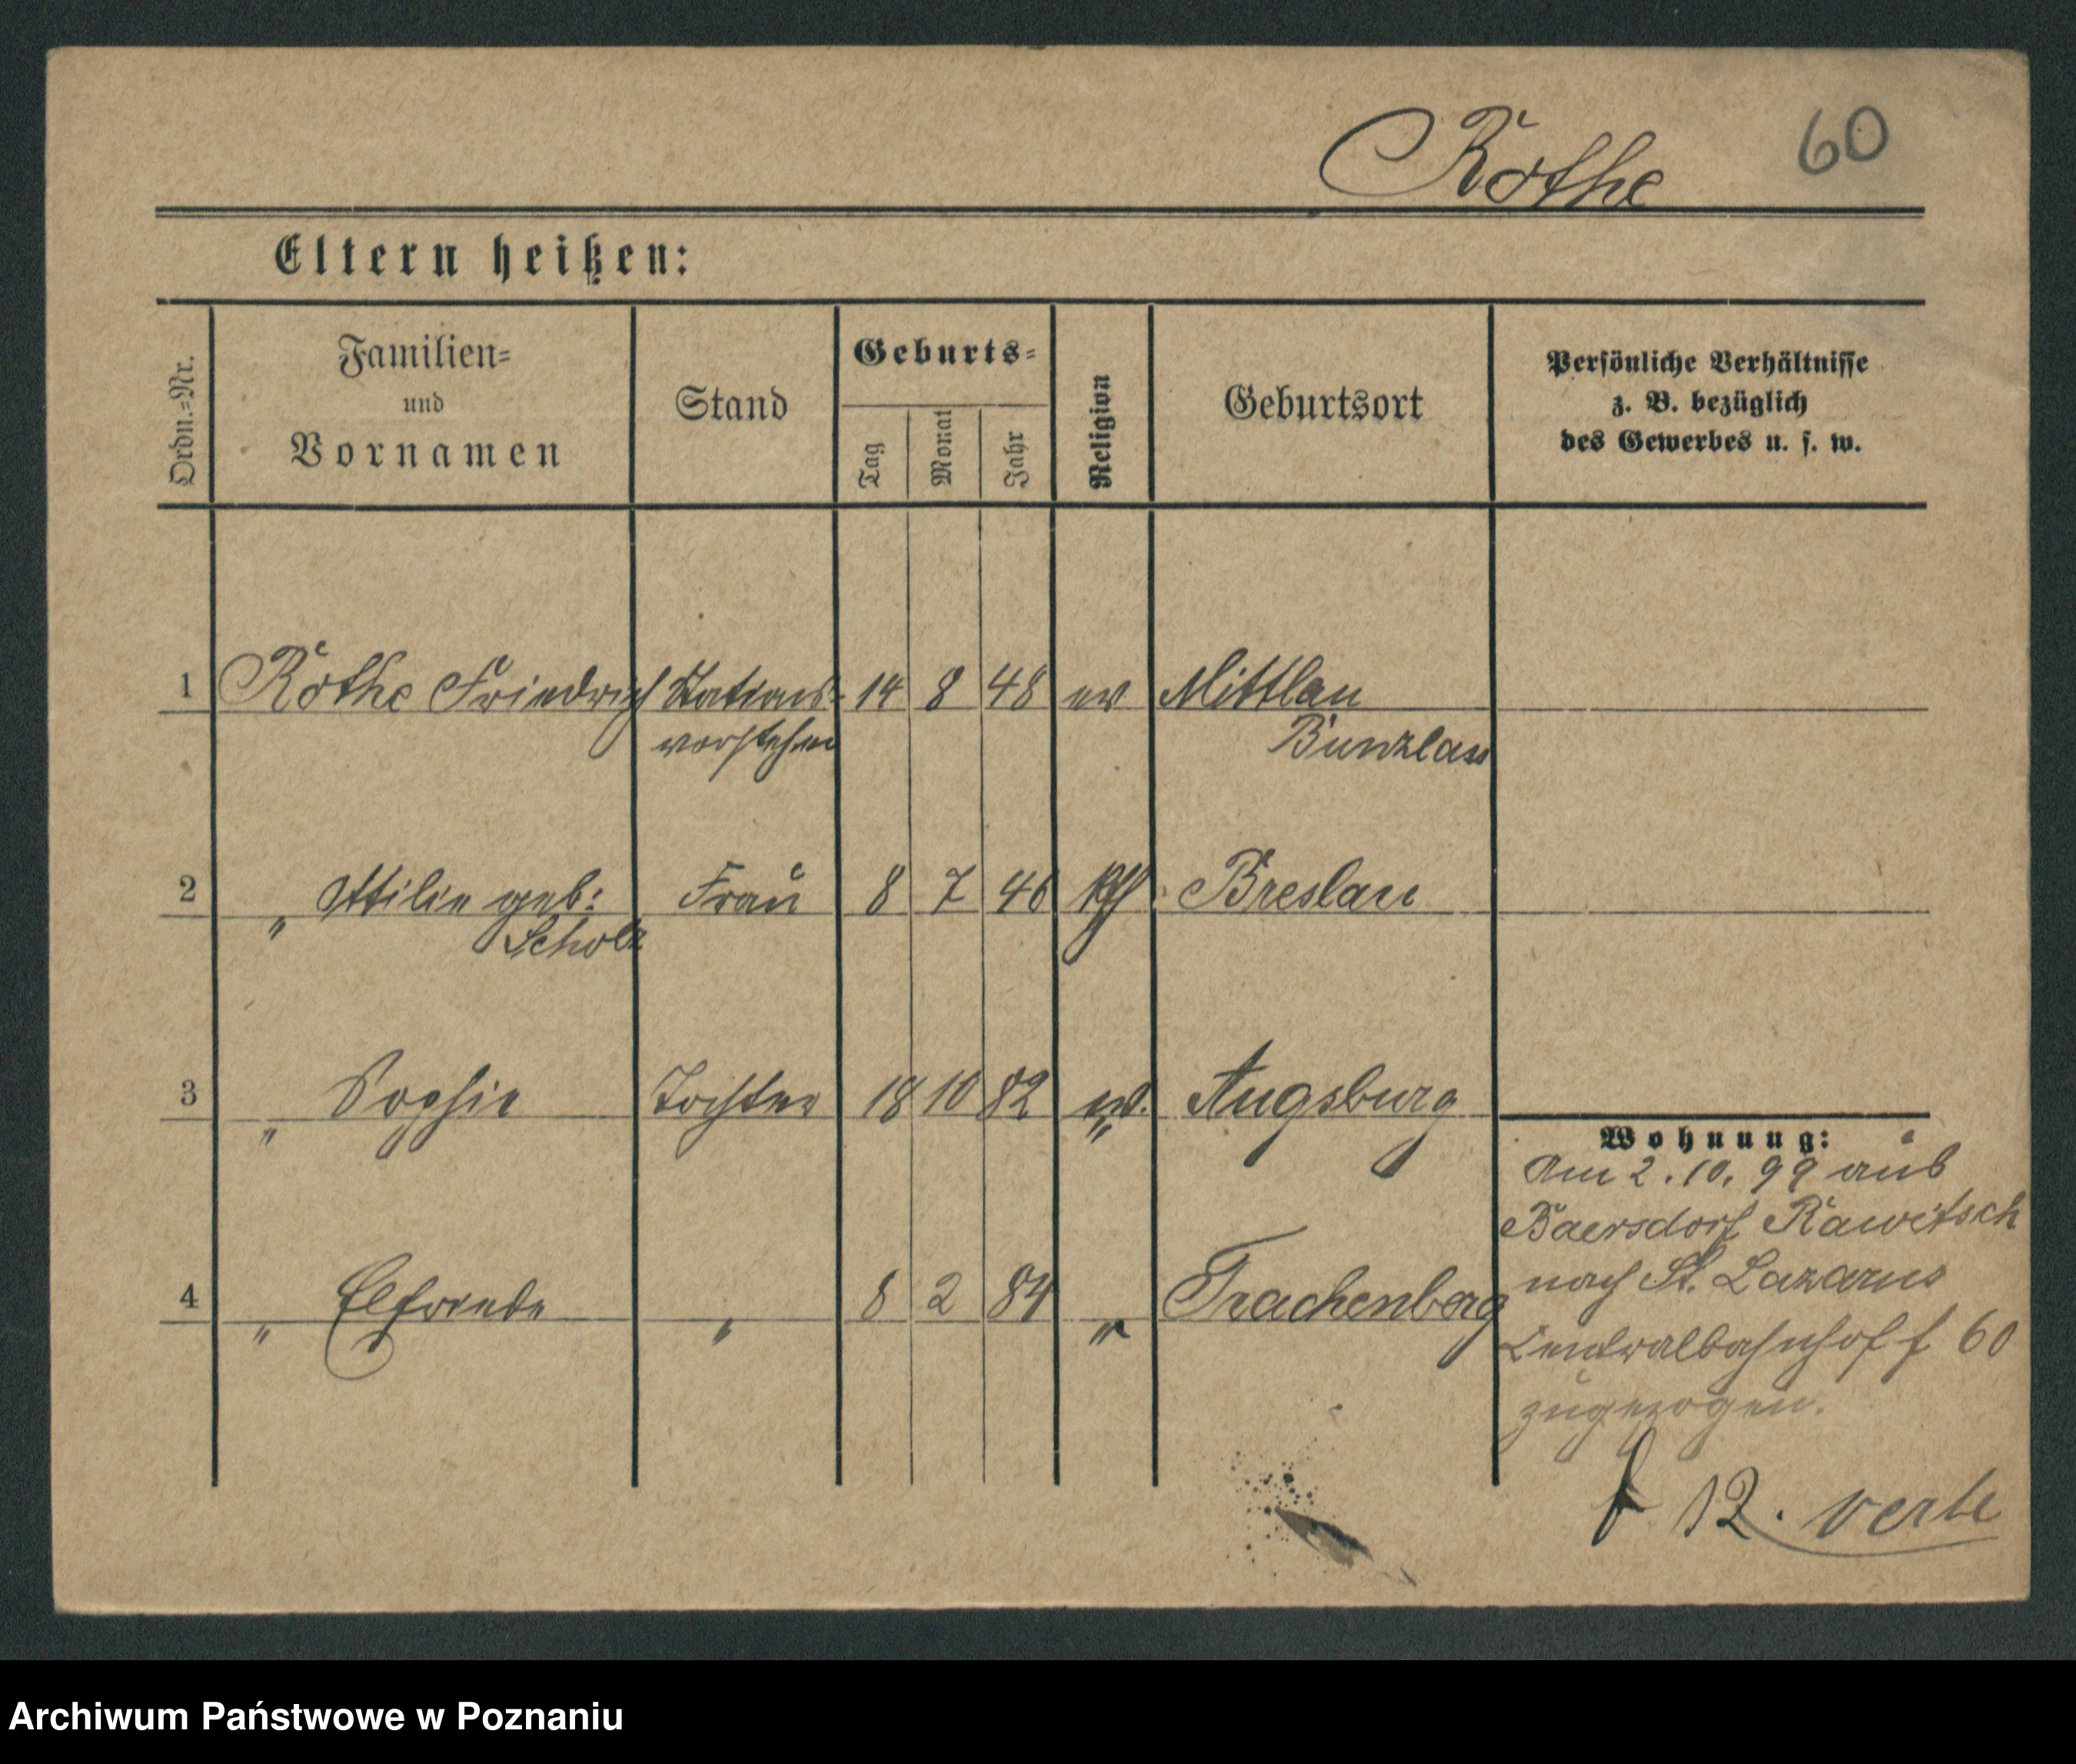 Rothe 60
Eltern heißen:
Ordn.=Nr. Familien= und Vornamen Stand Geburts= Tag Monat Jahr Religion Geburtsort Persönliche Verhältnisse
z. B. bezüglich
des Gewerbes u. s. w.
1 Rothe Friedrich Stations- 14 8 48 ev Mittlau
vorsteher Bunzlau
2 " Ottilie geb: Frau 8 7 46 kth Breslau
Scholz
3 " Sophie Tochter 18 10 82 ev. Augsburg
"
Wohnung:
Am 2. 10. 99 aus
Baersdorf Rawitsch
nach St. Lazarus
4 " Elfriede " 8 2 84 " Trachenberg
Centralbahnhof f 60
zugezogen.
f 12. verte
Archiwum Państwowe w Poznaniu